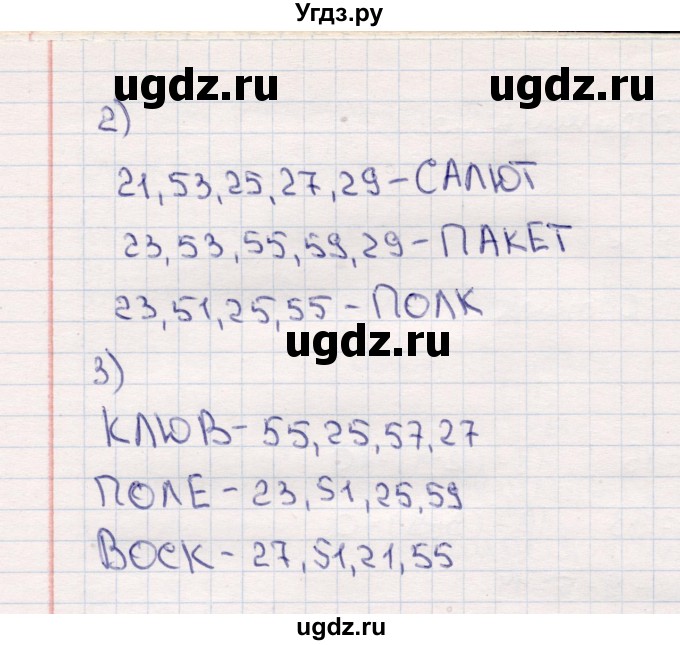 Угдз.ру
ugdz.ru ugdz.ru
2)
21, 53, 25, 27, 29 - САЛЮТ
23, 53, 55, 59, 29 - ПАКЕТ
23, 51, 25, 55 - ПОЛК
ugdz.ru
3)
КЛЮВ - 55, 25, 57, 27
ПОЛЕ - 23, 51, 25, 59
ВОСК - 27, 51, 21, 55
ugdz.ru